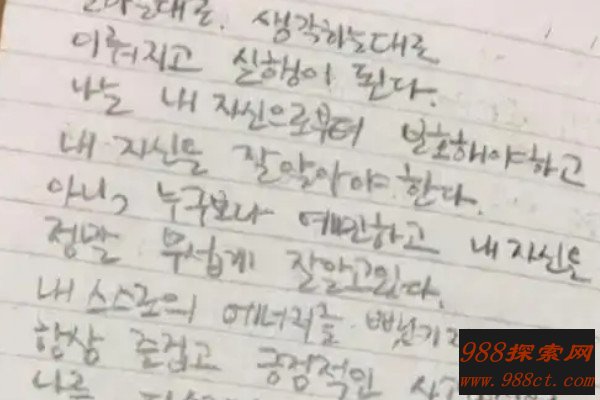 생각하는대로
이뤄지고 실행이 된다.
나는 내 자신으로부터 보호해야하고
내 자신을 잘알아야 한다.
아니, 누구보다 예민하고 내 자신은
정말 무섭게 잘알고있다.
내 스스로의 에너지를 뺏기지
항상 즐겁고 긍정적인
나를
988探索网
www.988ct.com